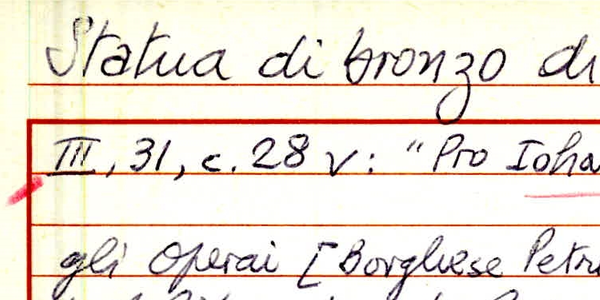 Statua di bronzo di
III, 31, c. 28 v: "Pro Ioha
gli Operai [Borghese Petru